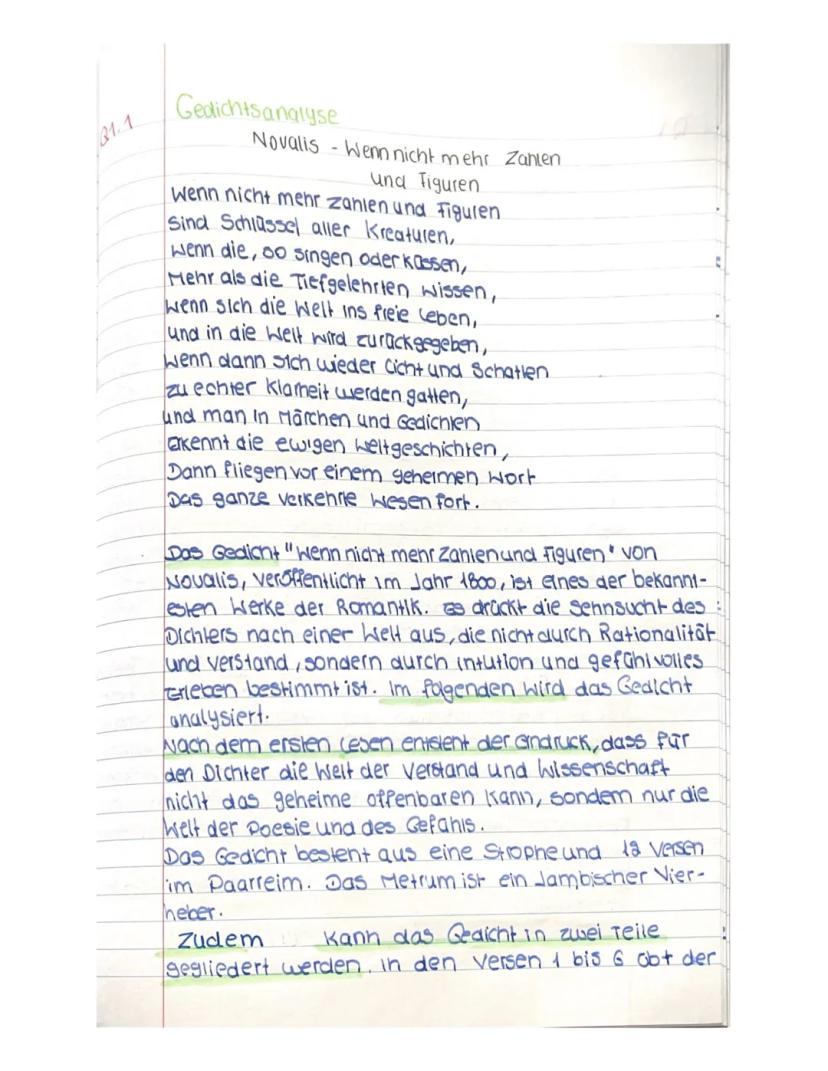 Q1.1
Gedichtsanalyse
Novalis - Wenn nicht mehr Zahlen
und Figuren
Wenn nicht mehr zahlen und Figuren
Sind Schlüssel aller Kreaturen,
Wenn die, so singen oder küssen,
Mehr als die Tiefgelehrten wissen,
Wenn sich die Welt ins freie Leben,
und in die Welt wird zurückgegeben,
Wenn dann sich wieder Licht und Schatten
zu echter Klarheit werden gatten,
und man in Märchen und Gedichten
erkennt die ewigen Weltgeschichten,
Dann fliegen vor einem geheimen Wort
Das ganze verkehrte Wesen fort.
Das Gedicht "Wenn nicht mehr Zahlen und Figuren" von
Novalis, veröffentlicht im Jahr 1800, ist eines der bekannt-
esten Werke der Romantik. es drückt die Sehnsucht des
Dichters nach einer Welt aus, die nicht durch Rationalität
und Verstand, sondern durch intution und gefühlvolles
Erleben bestimmt ist. Im folgenden wird das Gedicht
analysiert.
Nach dem ersten Lesen entsteht der Eindruck, dass für
den Dichter die Welt der Verstand und Wissenschaft
nicht das geheime offenbaren kann, sondern nur die
Welt der Poesie und des Gefühls.
Das Gedicht besteht aus eine Strophe und 12 Versen
im Paarreim. Das Metrum ist ein Jambischer Vier-
heber.
Zudem kann das Gedicht in zwei Teile
gegliedert werden. in den Versen 1 bis 6 übt der